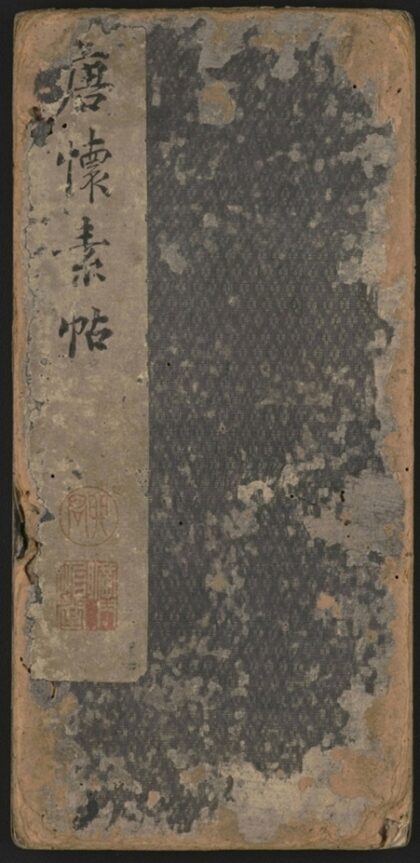 唐懷素帖